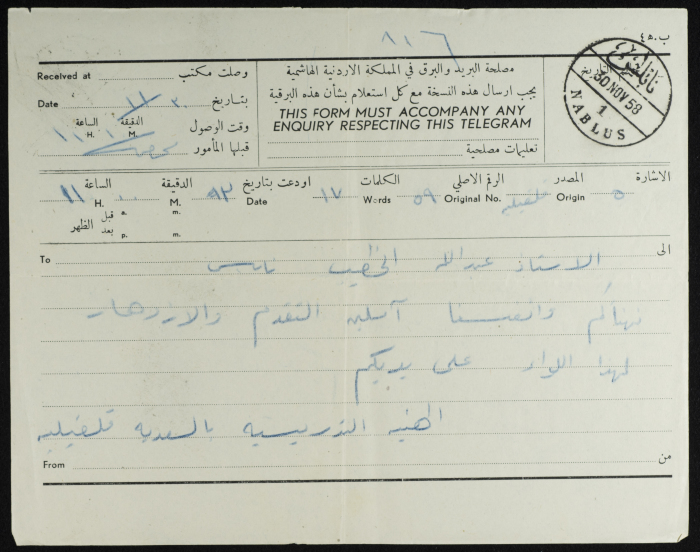 ٨١٦
ب.ه٤
مصلحة البريد والبرق في المملكة الاردنية الهاشمية
يجب ارسال هذه النسخة مع كل استعلام بشأن هذه البرقية
THIS FORM MUST ACCOMPANY ANY
ENQUIRY RESPECTING THIS TELEGRAM
تعليمات مصلحية
Received at وصلت مكتب
Date بتاريخ ٣٠ ١١
الساعة H. الدقيقة M. وقت الوصول
قبلها المأمور
نابلس
30 NOV 58
1
NABLUS
الاشارة ٥ المصدر Origin قلقيلية الرقم الاصلي Original No. ٥٩ الكلمات Words ١٧ اودعت بتاريخ Date الدقيقة M. الساعة H. ١١
a. قبل m.
p. بعد m. الظهر
To الى
الاستاذ عبدالله الخطيب نابلس
نهنأكم وانفسنا آملين التقدم والازدهار
لهذا اللواء على يديكم
الهيئه التدريسيه بالسعديه قلقيليه
From من